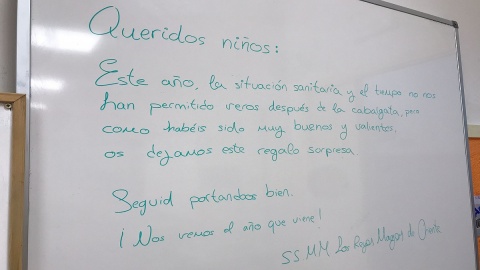 Queridos niños:
Este año, la situación sanitaria y el tiempo no nos
han permitido veros después de la cabalgata, pero
como habéis sido muy buenos y valientes,
os dejamos este regalo sorpresa.
Seguid portandoos bien.
¡Nos vemos el año que viene!
SS MM Los Reyes Magos de Oriente